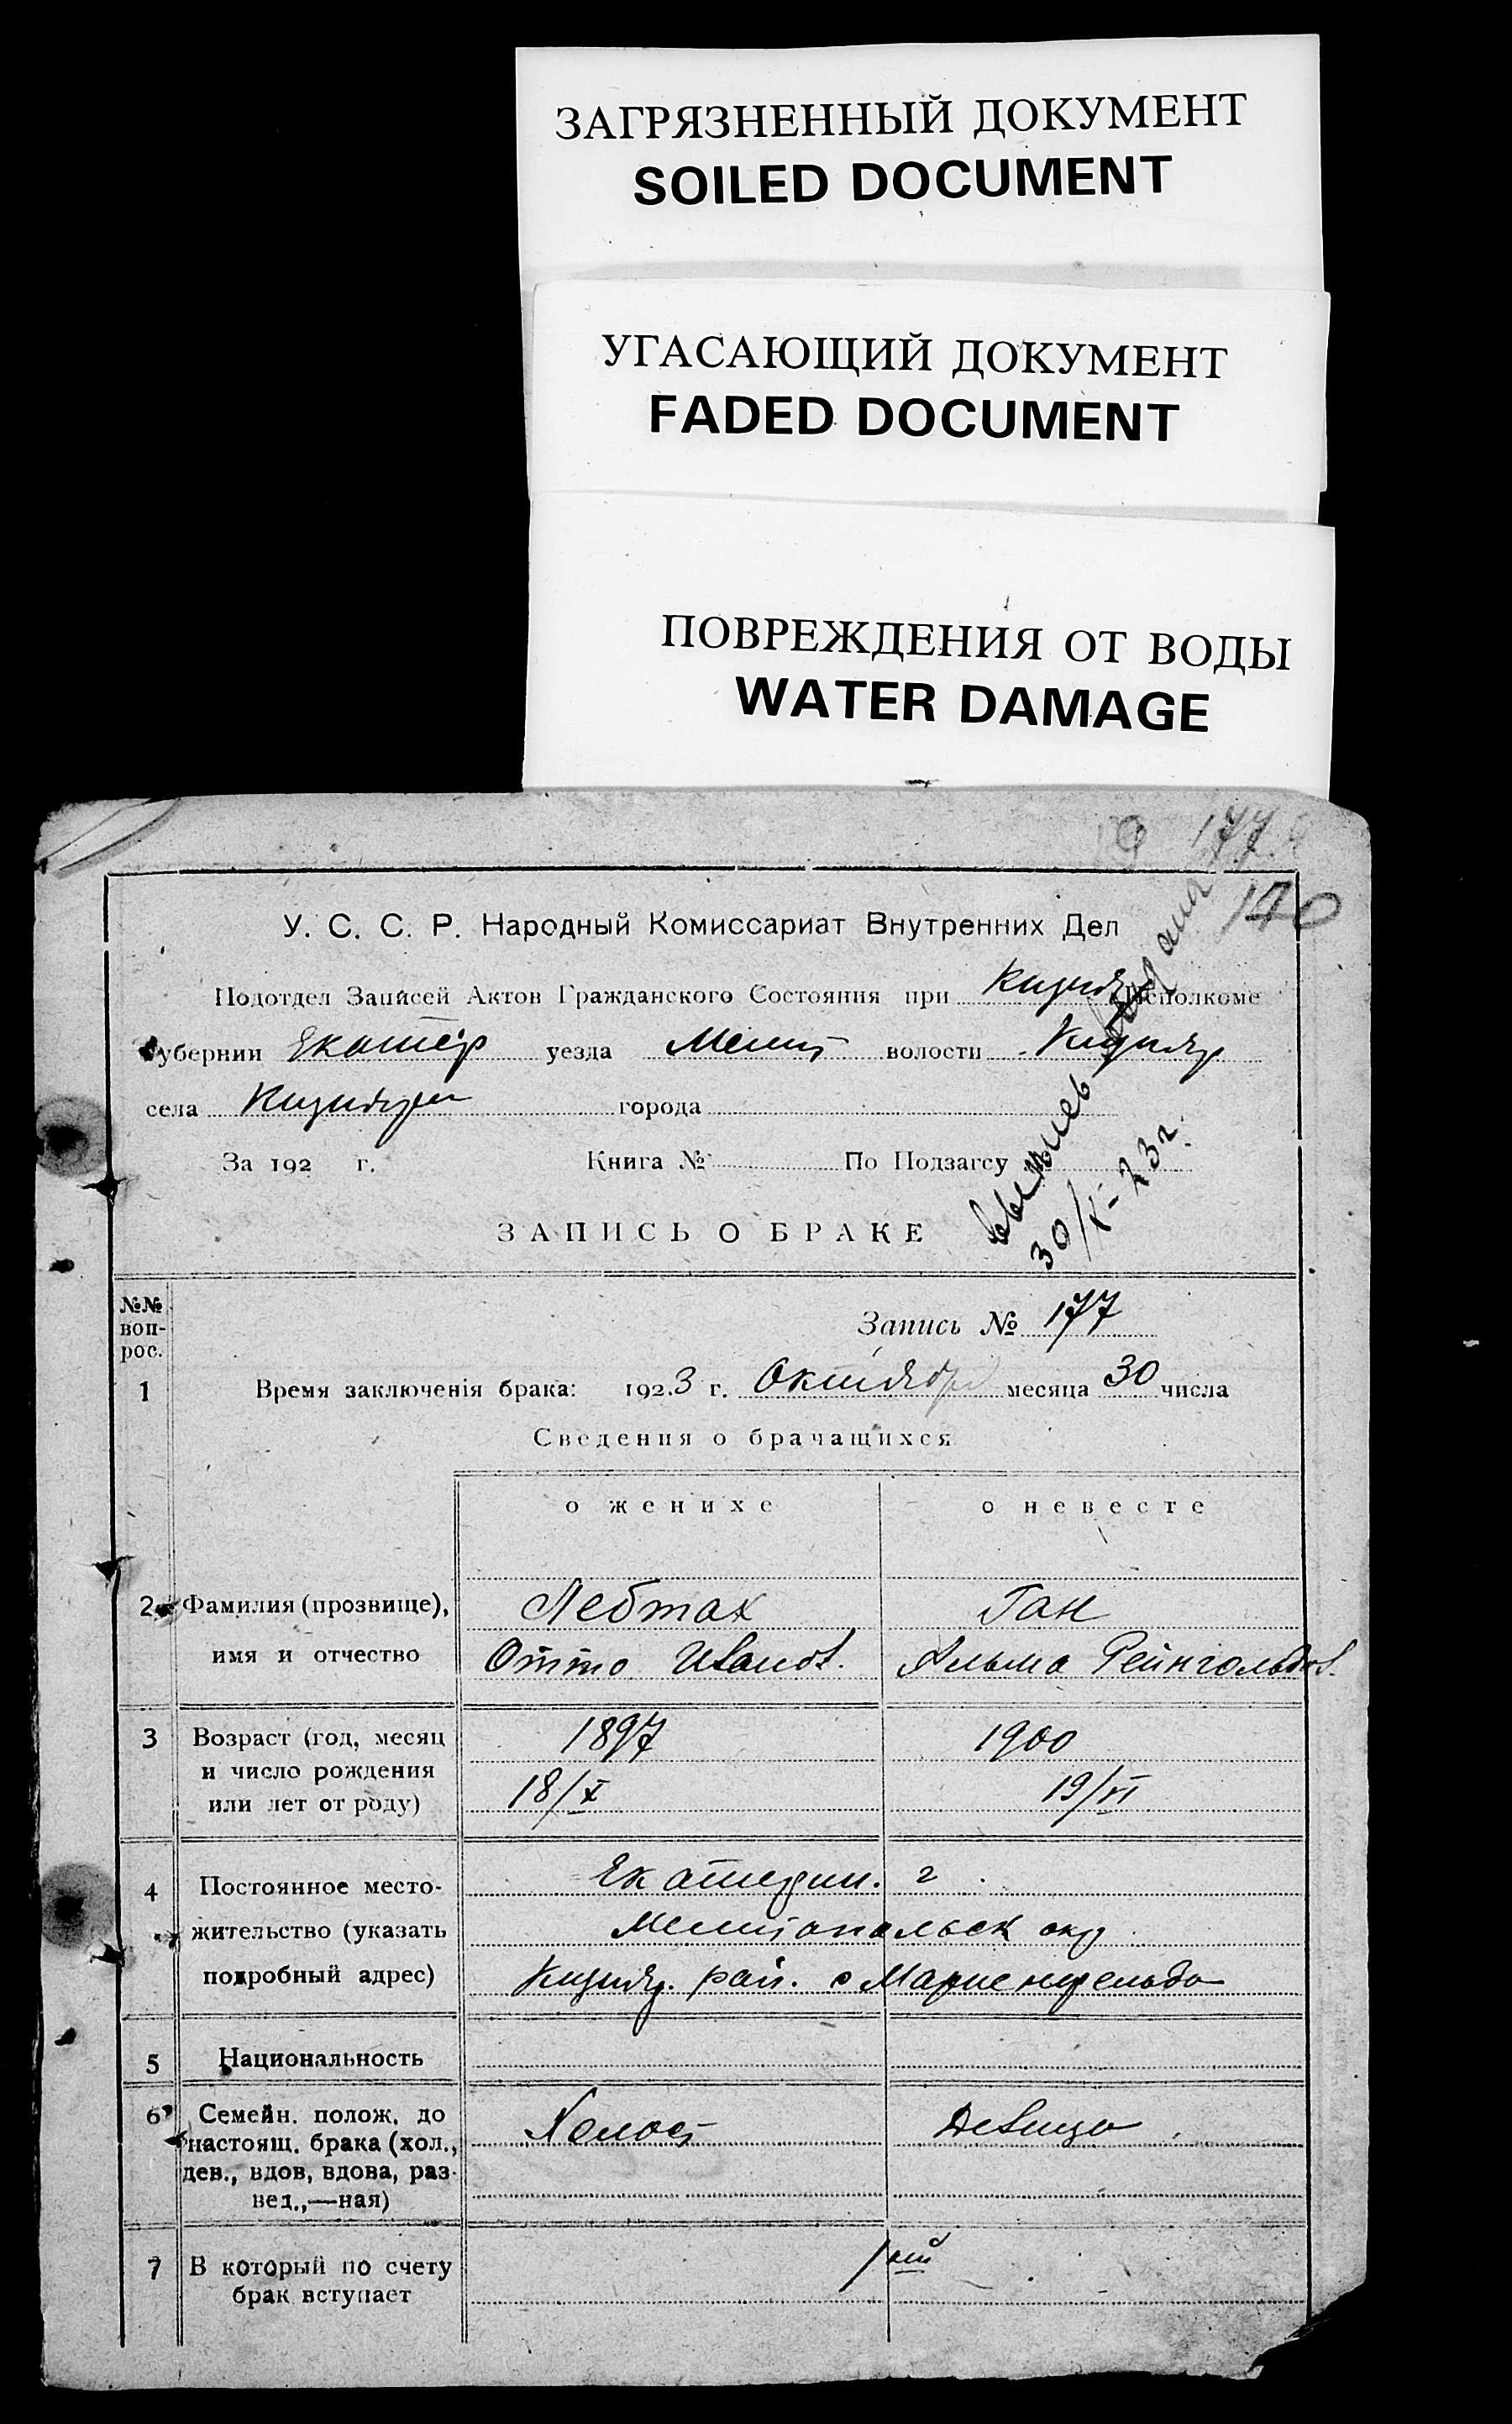 ЗАГРЯЗНЕННЫЙ ДОКУМЕНТ
SOILED DOCUMENT
УГАСАЮЩИЙ ДОКУМЕНТ
FADED DOCUMENT
ПОВРЕЖДЕНИЯ ОТ ВОДЫ
WATER DAMAGE
9 177
140
У. С. С. Р. Народный Комиссариат Внутренних Дел
Подотдел Записей Актов Гражданского Состояния при Кизияр Исполкоме
Губернии Екатер уезда Мелит волости Кизияр
села Кизияры города
За 192 г. Книга № По Подзагсу
30/X-23 г.
ЗАПИСЬ О БРАКЕ
№№ вопрос.
Запись № 177
1 Время заключенія брака: 1923 г. Октября месяца 30 числа
Сведения о брачащихся
о женихе о невесте
2 Фамилия (прозвище), Лебтах Ган
имя и отчество Отто Иванов. Альма Рейнгольдов.
3 Возраст (год, месяц 1897 1900
и число рождения 18/X 19/VI
или лет от роду)
4 Постоянное место- Екатерин. г.
жительство (указать Мелитопольск окр
подробный адрес) Кизияр. рай. с Мариенфельд
5 Национальность
6 Семейн. полож. до
настоящ. брака (хол., Холост Девица
дев., вдов, вдова, раз-
вед.,—ная)
7 В который по счету 1ый
брак вступает